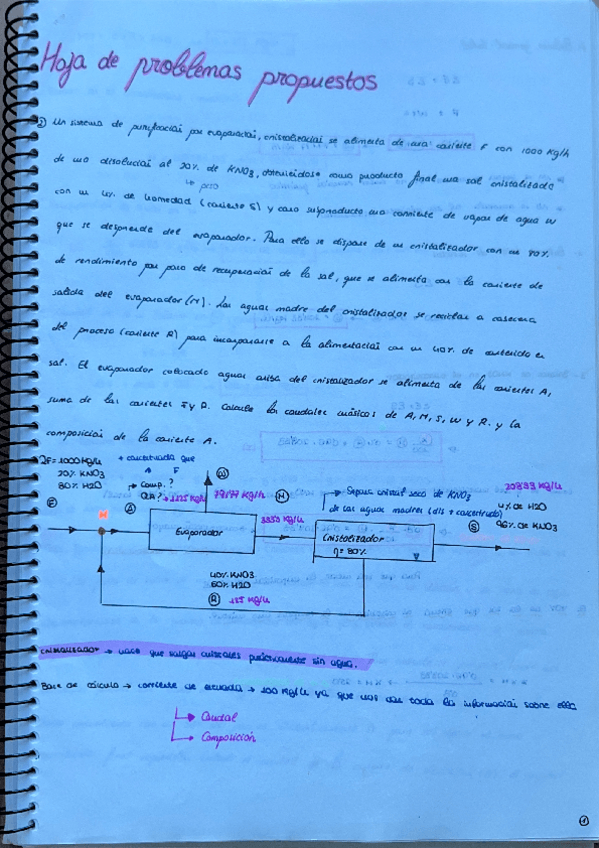 Hoja de problemas propuestos
② Un sistema de purificación por evaporación, cristalización se alimenta de una corriente F con 1000 Kg/h
de una disolución al 20% de KNO3, obteniéndose como producto final una sal cristalizada
↳ peso
con un 4% de humedad (corriente S) y como subproducto una corriente de vapor de agua W
que se desprende del evaporador. Para ello se dispone de un cristalizador con un 80%
de rendimiento por paso de recuperación de la sal, que se alimenta con la corriente de
salida del evaporador (M). Las aguas madre del cristalizador se reciclan a cabecera
del proceso (corriente R) para incorporarse a la alimentación con un 40% de contenido en
sal. El evaporador colocado aguas arriba del cristalizador se alimenta de las corrientes A,
suma de las corrientes F y R. Calcule los caudales másicos de A, M, S, W y R. y la
composición de la corriente A.
QF=1000 Kg/h
20% KNO3
80% H2O
+ concentrada que
A F
→ Comp.?
QA?
W
M
→ Separa cristal seco de KNO3
de las aguas madres (dis + concentrado)
4% de H2O
96% de KNO3
F
M
A
Evaporador
Cristalizador
η=80%
S
40% KNO3
60% H2O
R
CRISTALIZADOR → hace que salgan cristales prácticamente sin agua.
Base de cálculo → corriente de entrada → 100 Kg/h ya que nos dan toda la información sobre ella
→ Caudal
→ Composición
1